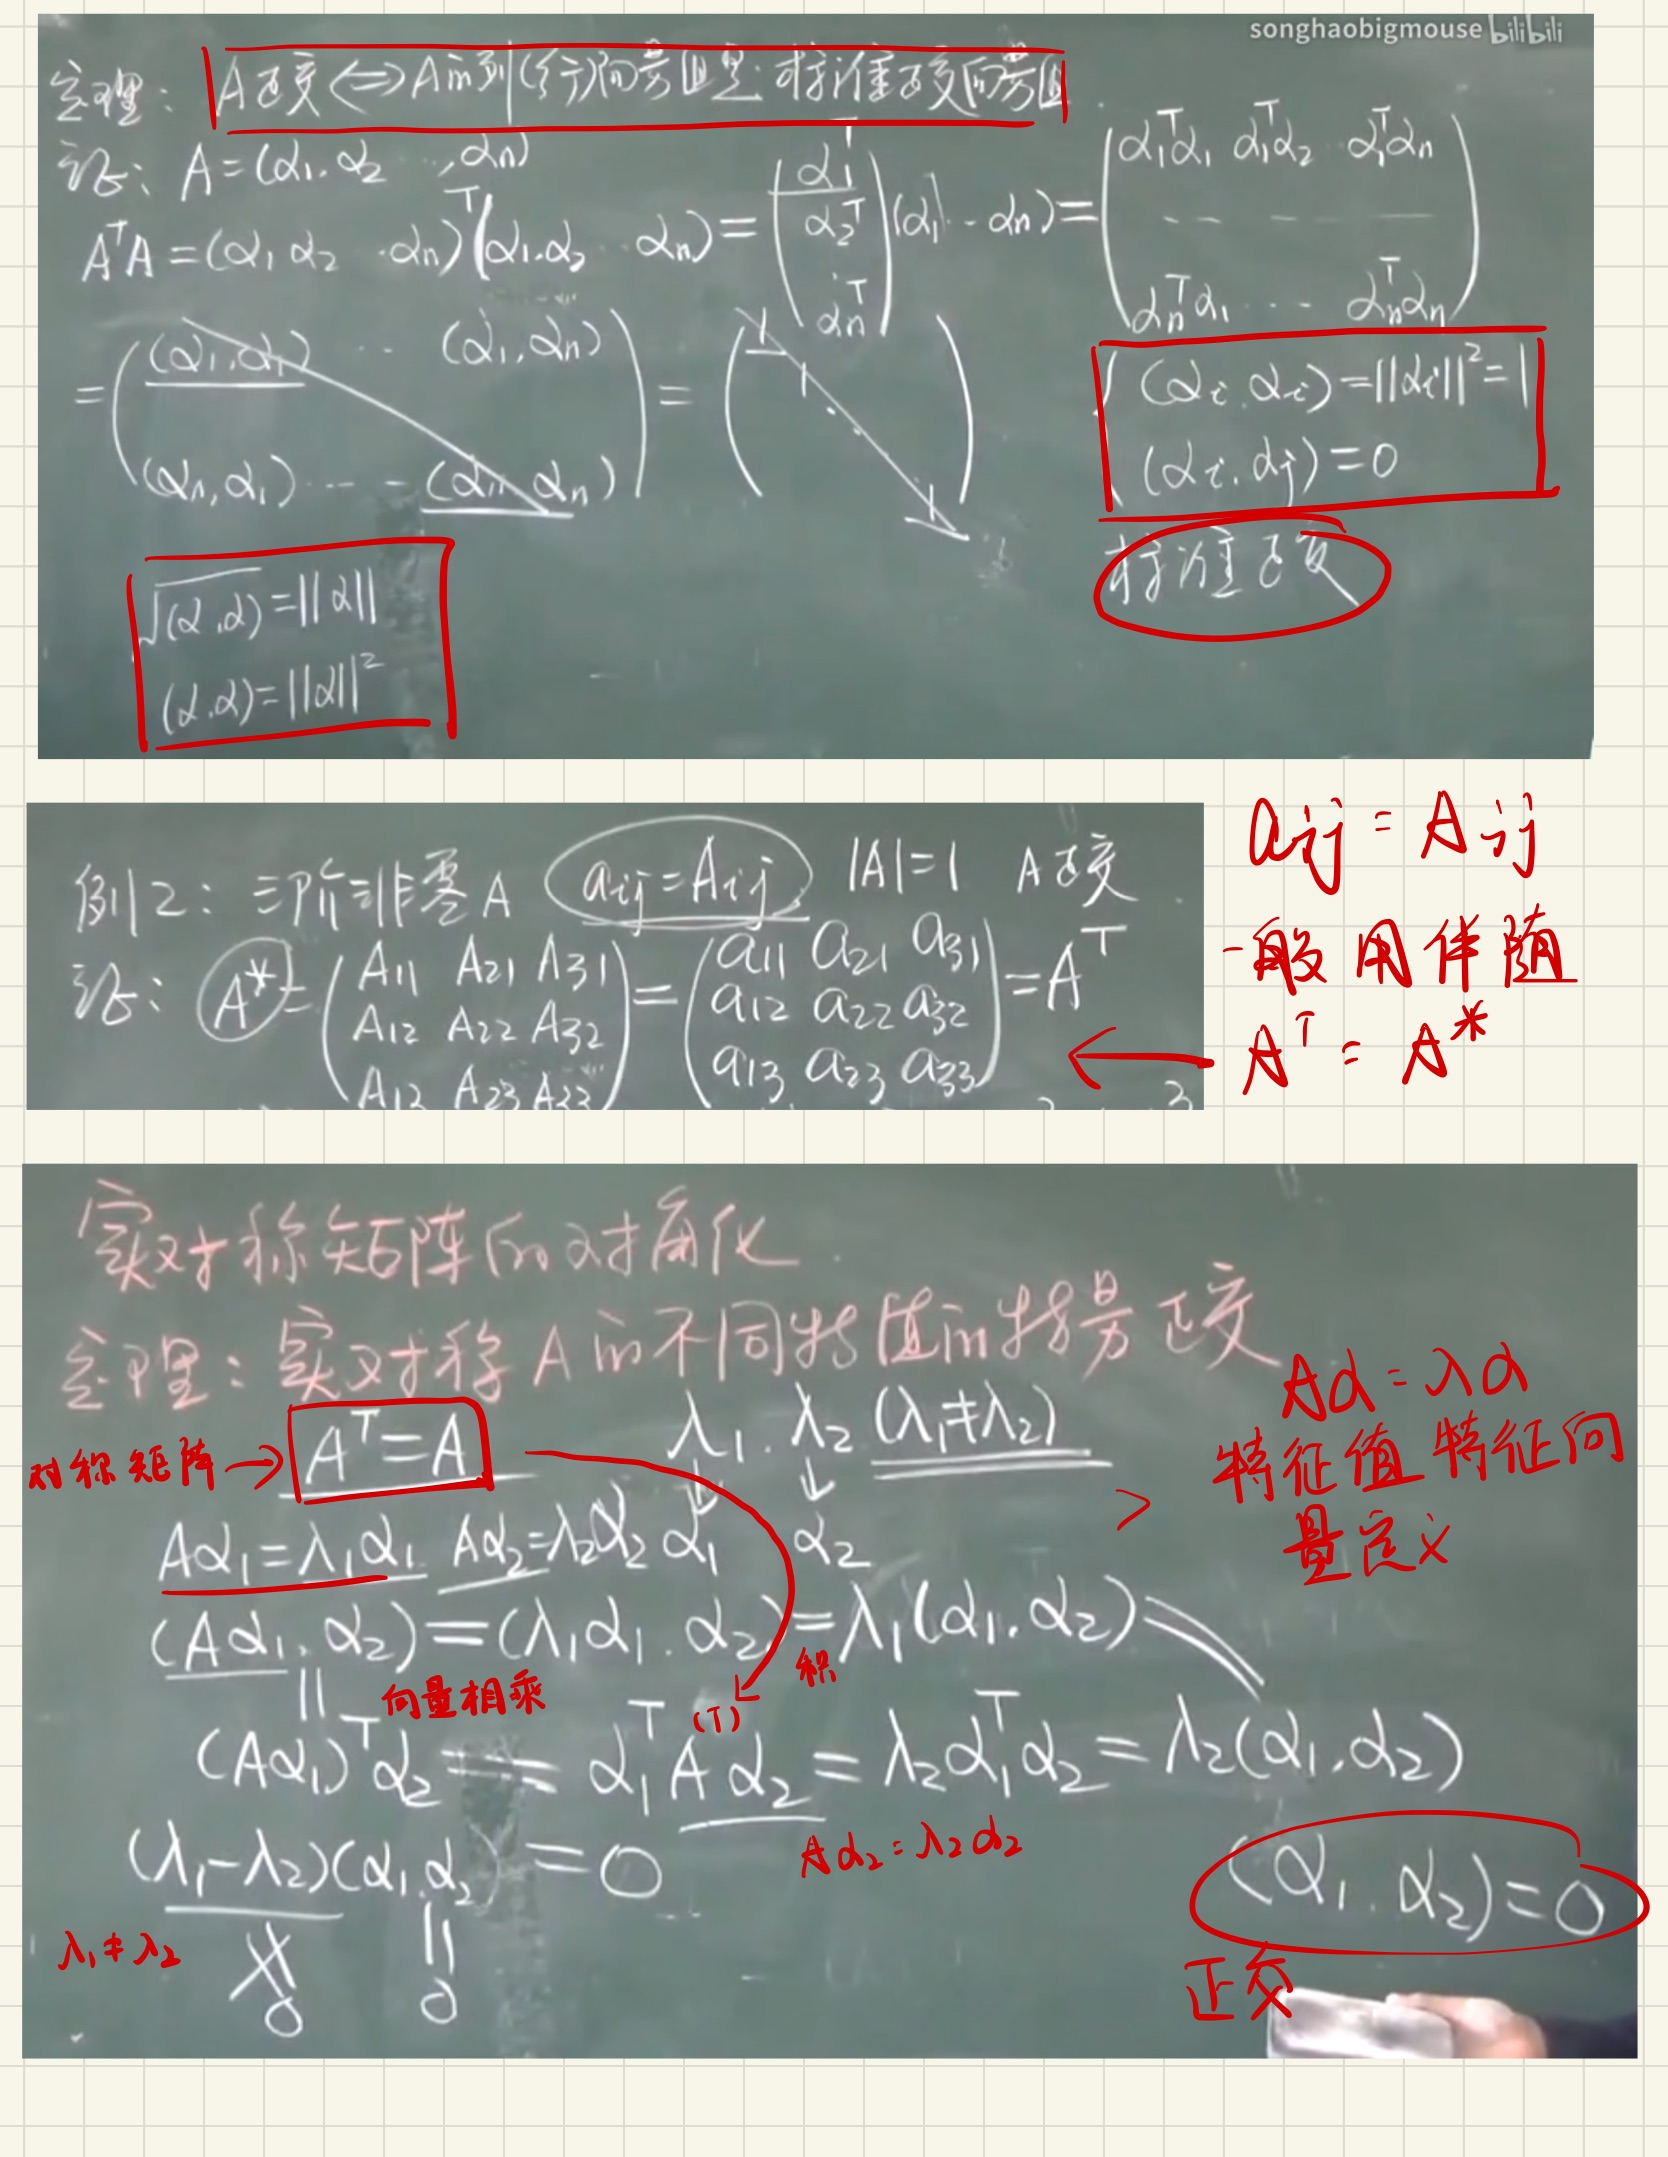 songhaobigmouse bilibili
定理: A正交⟺A的列(行)向量组是标准正交向量组.
证: A=(α₁.α₂ …,αₙ)
AᵀA=(α₁ α₂ …αₙ)ᵀ(α₁.α₂ … αₙ)=(α₁ᵀ α₂ᵀ ⋮ αₙᵀ)(α₁ … αₙ)=(α₁ᵀα₁ α₁ᵀα₂ … α₁ᵀαₙ
… … …
αₙᵀα₁ … αₙᵀαₙ)
=((α₁,α₁) … (α₁,αₙ)
(αₙ,α₁) … (αₙ,αₙ)) = (1 1 ⋱ 1)
(αᵢ.αᵢ)=||αᵢ||²=1
(αᵢ.αⱼ)=0
标准正交
√(α,α)=||α||
(α.α)=||α||²
例2: 三阶非零A aᵢⱼ=Aᵢⱼ |A|=1 A正交
证: A*=(A₁₁ A₂₁ A₃₁
A₁₂ A₂₂ A₃₂
A₁₃ A₂₃ A₃₃)=(a₁₁ a₂₁ a₃₁
a₁₂ a₂₂ a₃₂
a₁₃ a₂₃ a₃₃)=Aᵀ
aᵢⱼ=Aᵢⱼ
一般用伴随
Aᵀ=A*
实对称矩阵的对角化
定理: 实对称A的不同特值的特量正交
对称矩阵→ Aᵀ=A λ₁.λ₂ (λ₁≠λ₂)
Aα=λα
特征值特征向
量定义
Aα₁=λ₁α₁ Aα₂=λ₂α₂ α₁ α₂
(Aα₁.α₂)=(λ₁α₁.α₂)=λ₁(α₁.α₂)
向量相乘 (T) 积
(Aα₁)ᵀα₂ = α₁ᵀAα₂=λ₂α₁ᵀα₂=λ₂(α₁.α₂)
Aα₂=λ₂α₂
(λ₁-λ₂)(α₁.α₂)=0
(α₁.α₂)=0
λ₁≠λ₂ 0 0
正交